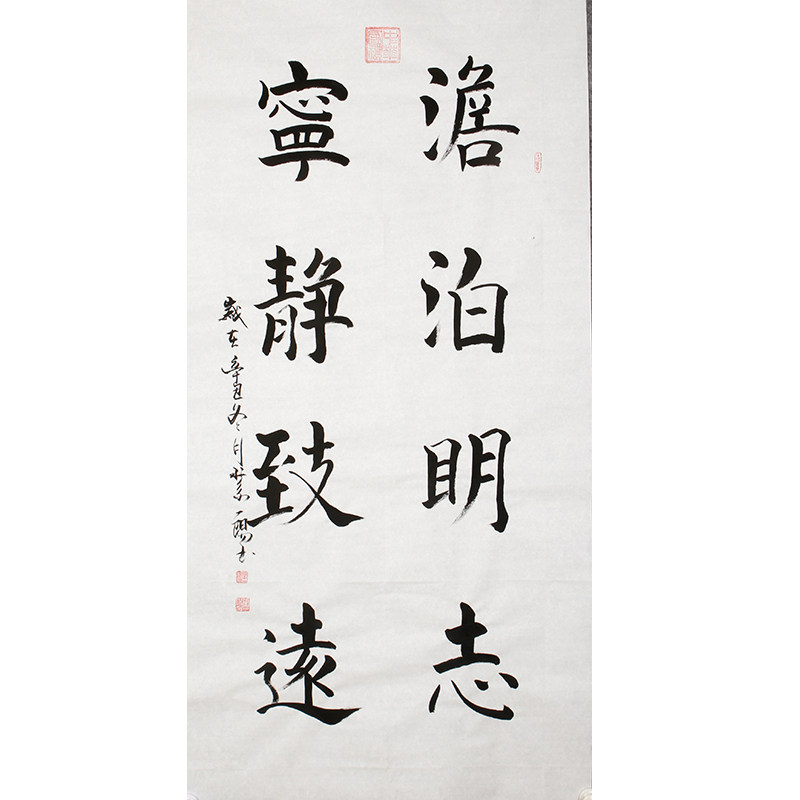 澹泊明志
寧静致遠
歲在辛丑冬月